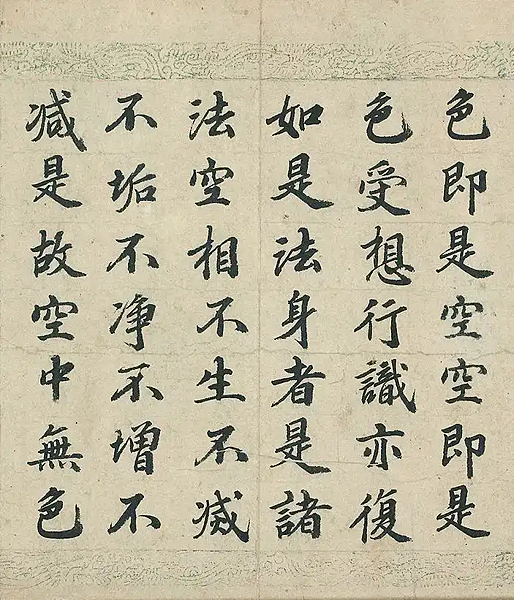 色即是空空即是
色受想行識亦復
如是法身者是諸
法空相不生不滅
不垢不净不增不
减是故空中無色